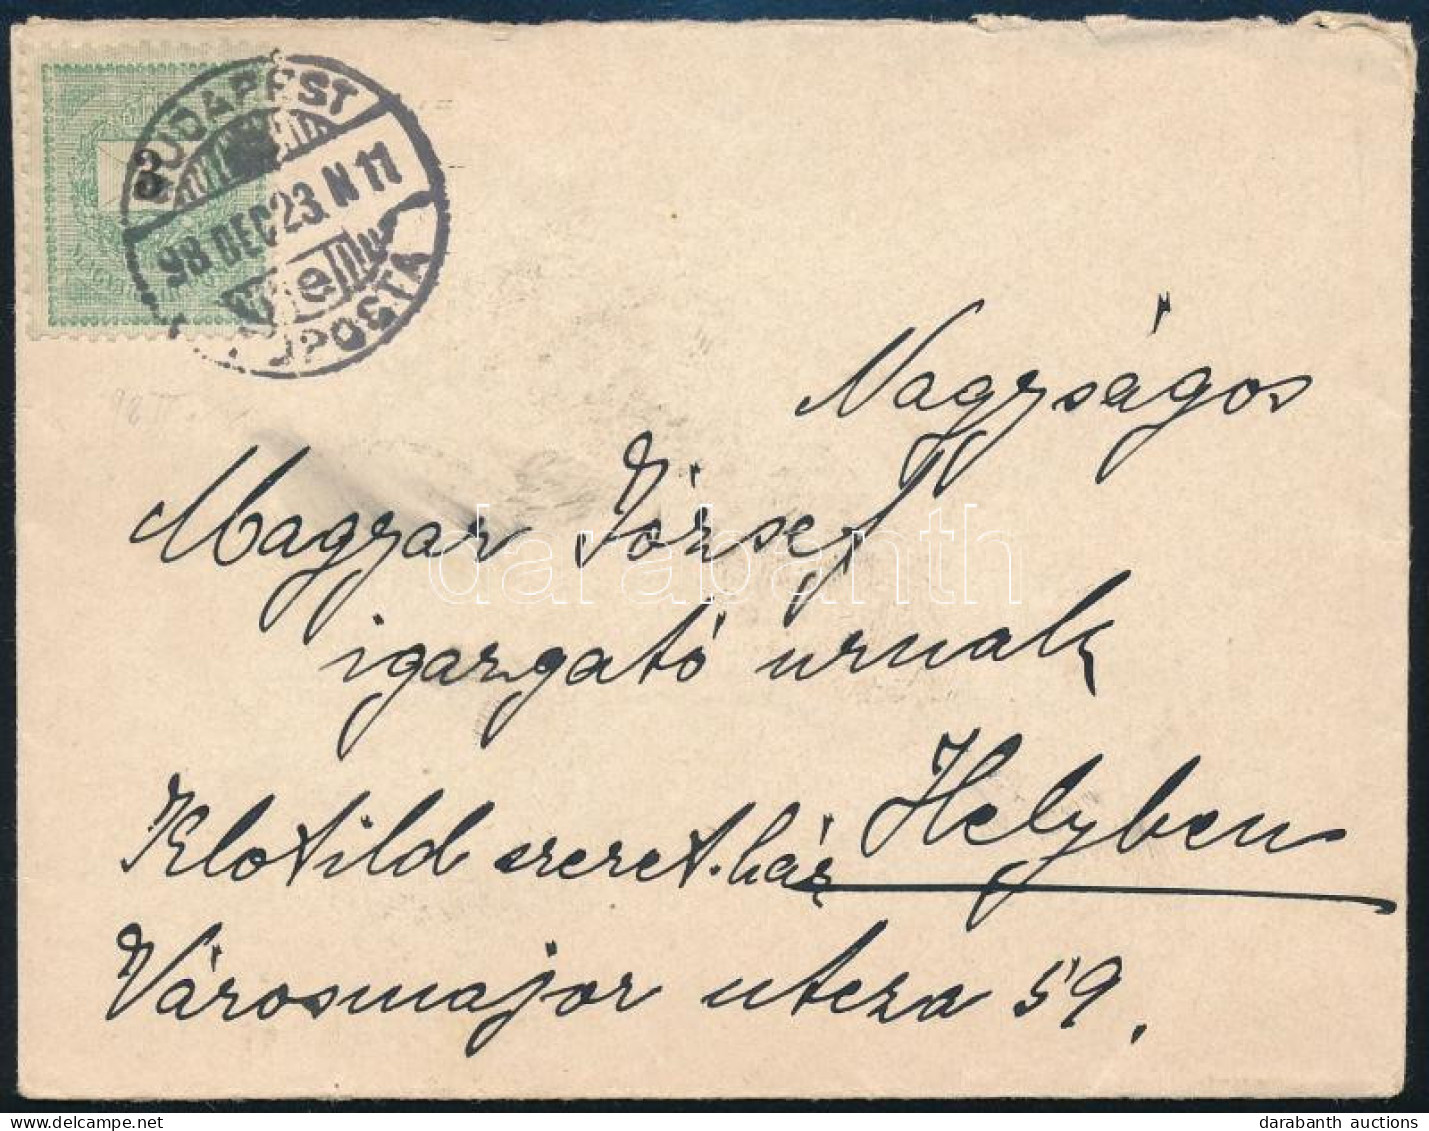 BUDAPEST
98 DEC 23. N 11
e
FŐPOSTA
3
Nagyságos
Magyar József
igazgató urnak
Helyben
Klotild szeret.ház
Városmajor utcza 59.
darabanth
darabanth auctions